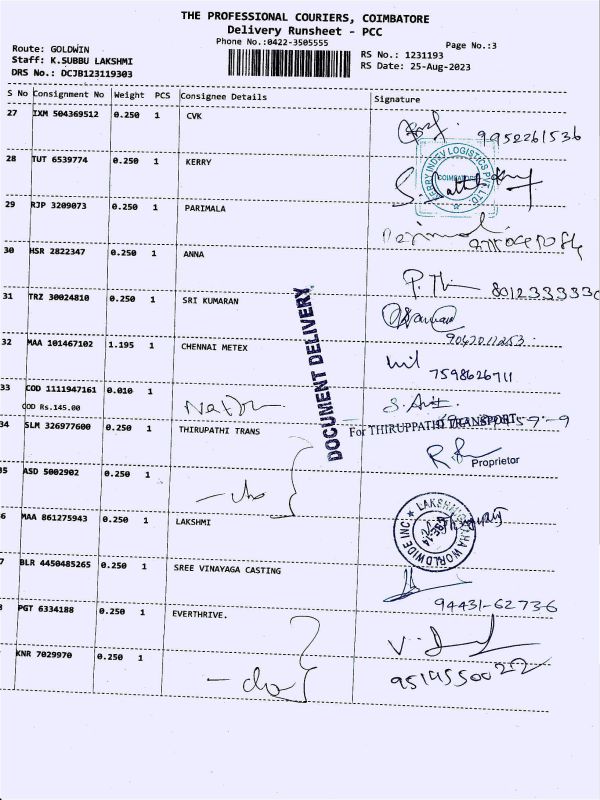 THE PROFESSIONAL COURIERS, COIMBATORE
Delivery Runsheet - PCC
Phone No.:0422-3505555
Page No.:3
Route: GOLDWIN
Staff: K.SUBBU LAKSHMI
DRS No.: DCJB123119303
RS No.: 1231193
RS Date: 25-Aug-2023
S No Consignment No Weight PCS Consignee Details Signature
27 IXM 504369512 0.250 1 CVK
9952261536
28 TUT 6539774 0.250 1 KERRY
KERRY INDEV LOGISTICS PVT. LTD.
COIMBATORE
29 RJP 3209073 0.250 1 PARIMALA
30 HSR 2822347 0.250 1 ANNA
8012333330
31 TRZ 30024810 0.250 1 SRI KUMARAN
32 MAA 101467102 1.195 1 CHENNAI METEX
7598626711
DOCUMENT DELIVERY
33 COD 1111947161 0.010 1
COD Rs.145.00
34 SLM 326977600 0.250 1 THIRUPATHI TRANS
For THIRUPPATHI TRANSPORT
Proprietor
5 ASD 5002902 0.250 1
6 MAA 861275943 0.250 1 LAKSHMI
WORLDWIDE INC
7 BLR 4450485265 0.250 1 SREE VINAYAGA CASTING
94431-62736
PGT 6334188 0.250 1 EVERTHRIVE.
KNR 7029970 0.250 1